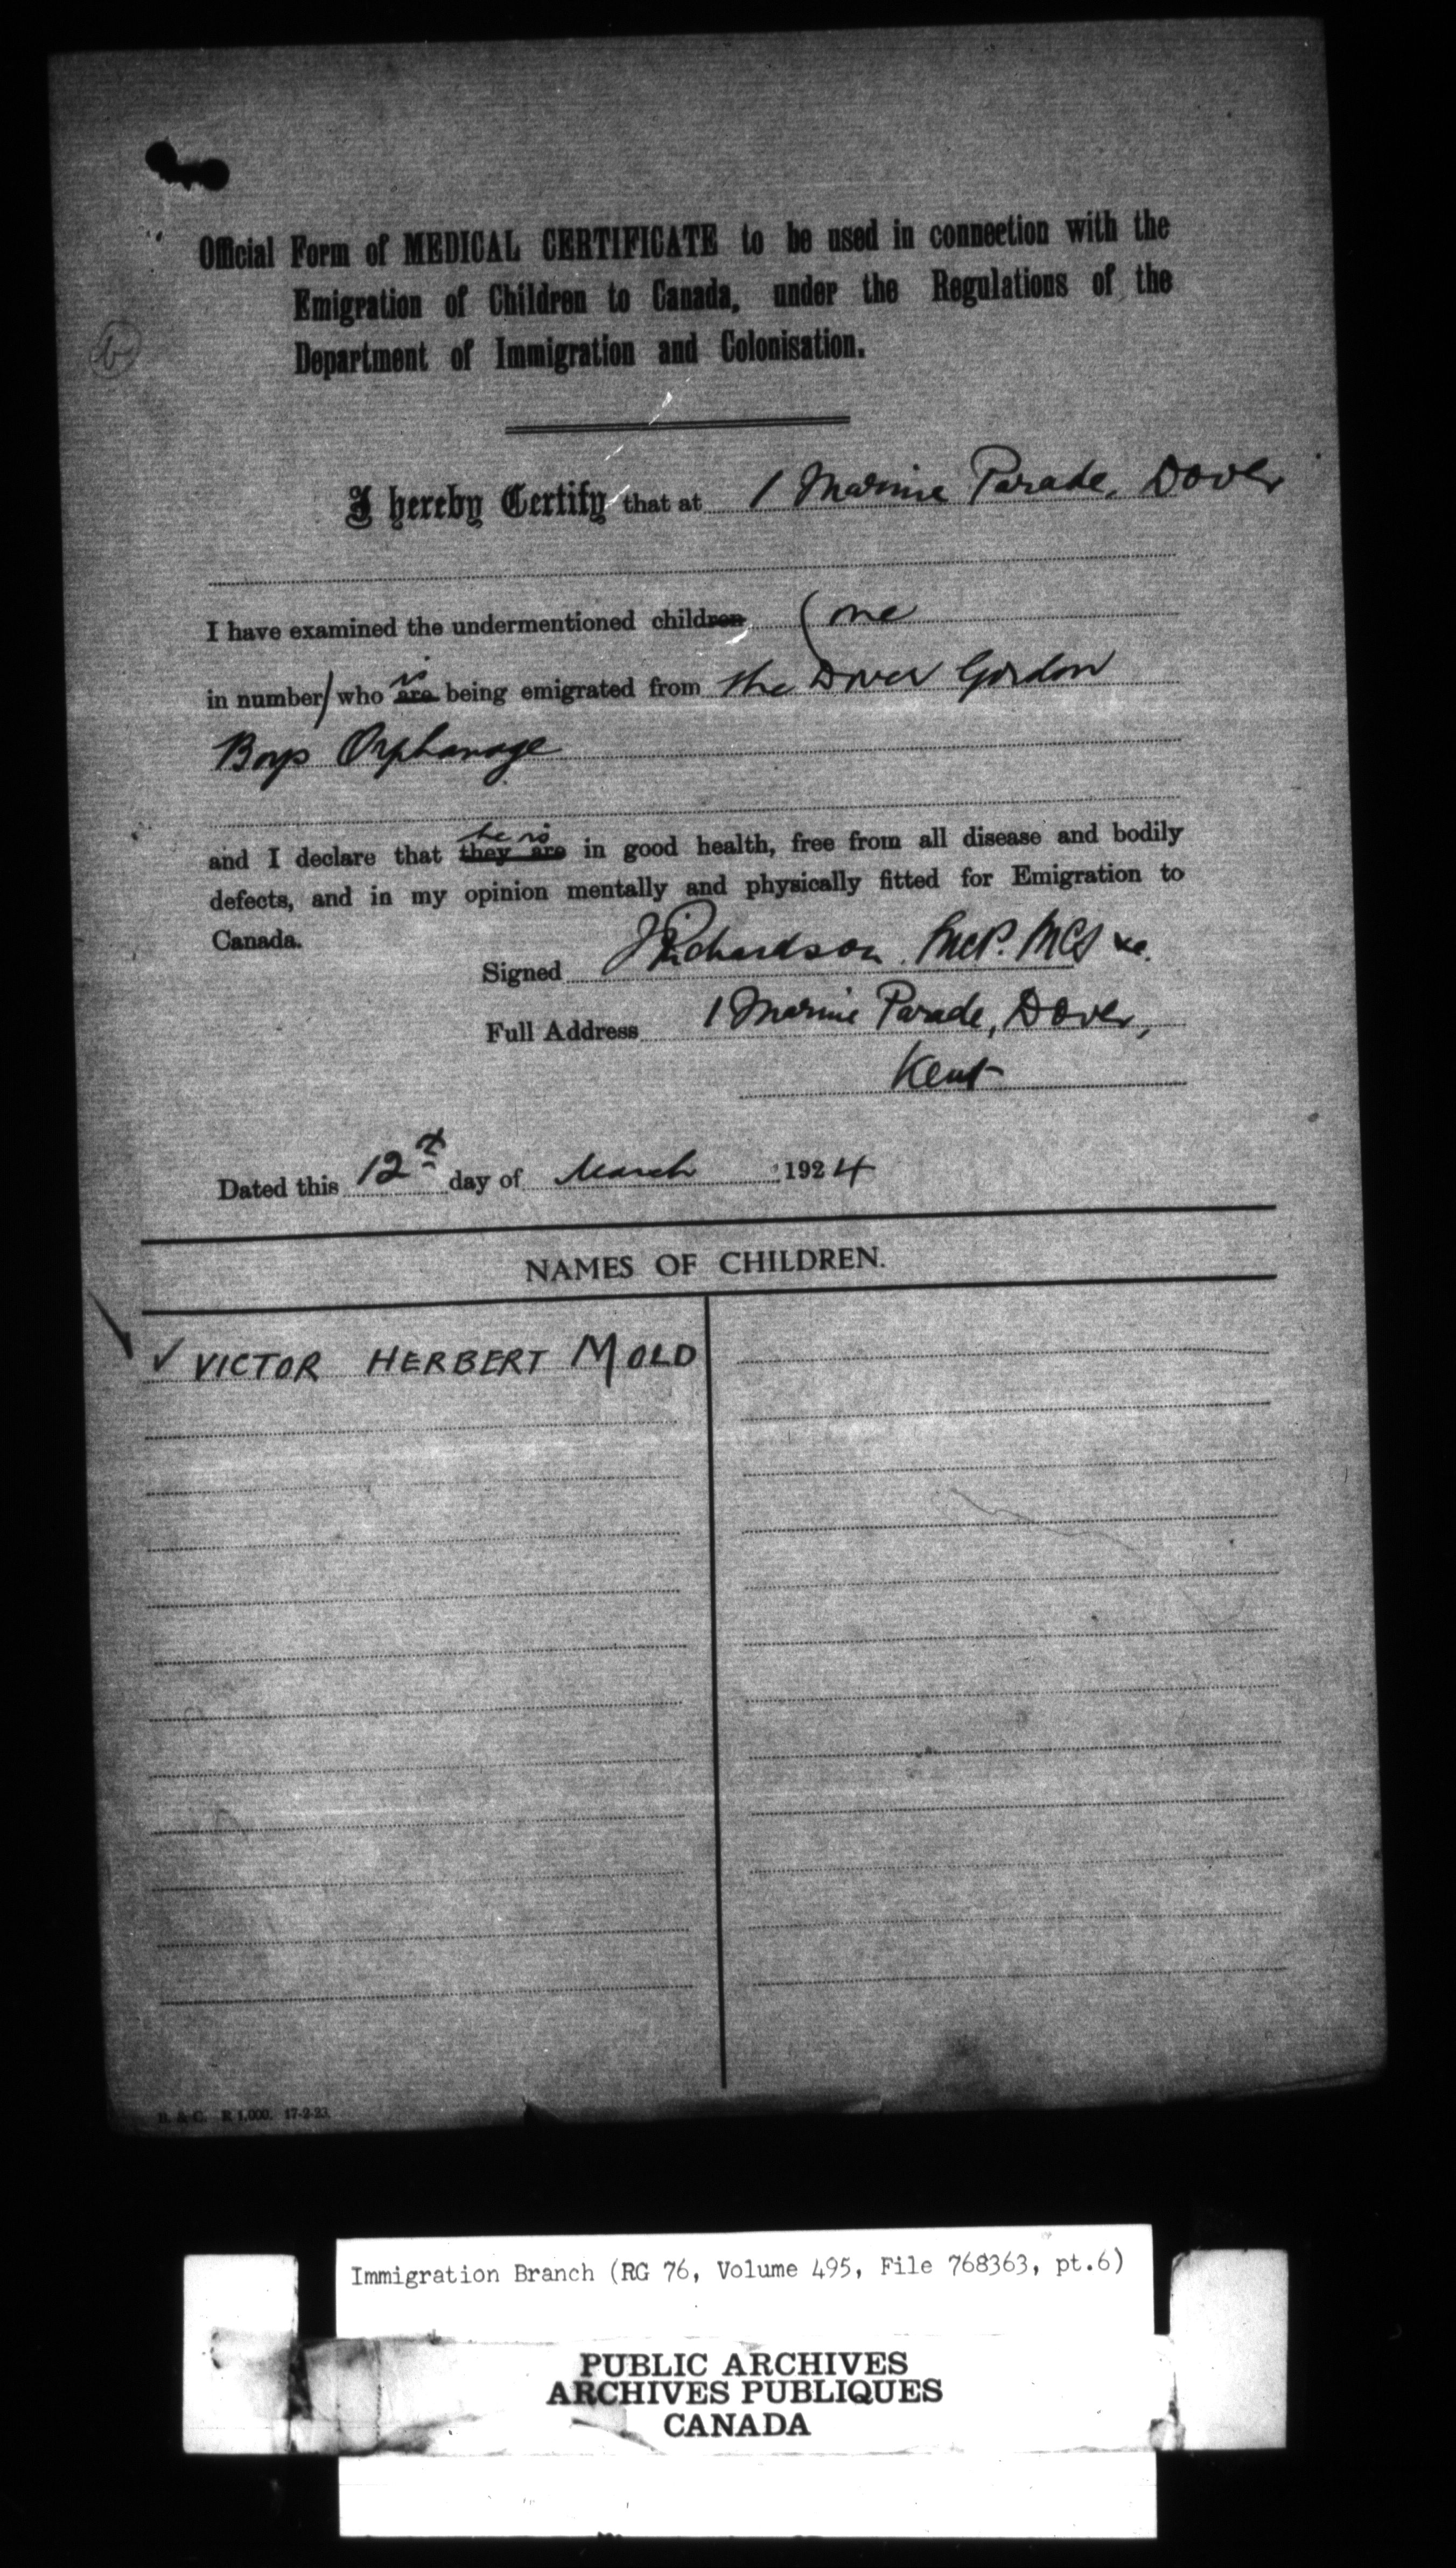 Official Form of MEDICAL CERTIFICATE to be used in connection with the
Emigration of Children to Canada, under the Regulations of the
Department of Immigration and Colonisation.
I hereby Certify that at 1 Marine Parade, Dover
I have examined the undermentioned children (one
is
in number) who are being emigrated from the Dover Gordon
Boys Orphanage
he is
and I declare that they are in good health, free from all disease and bodily
defects, and in my opinion mentally and physically fitted for Emigration to
Canada.
Signed J Richardson
Full Address 1 Marine Parade, Dover,
Kent
Dated this 12th day of March 1924
NAMES OF CHILDREN.
✓ VICTOR HERBERT MOLD
B. & C. R 1,000. 17-2-23.
Immigration Branch (RG 76, Volume 495, File 768363, pt.6)
PUBLIC ARCHIVES
ARCHIVES PUBLIQUES
CANADA